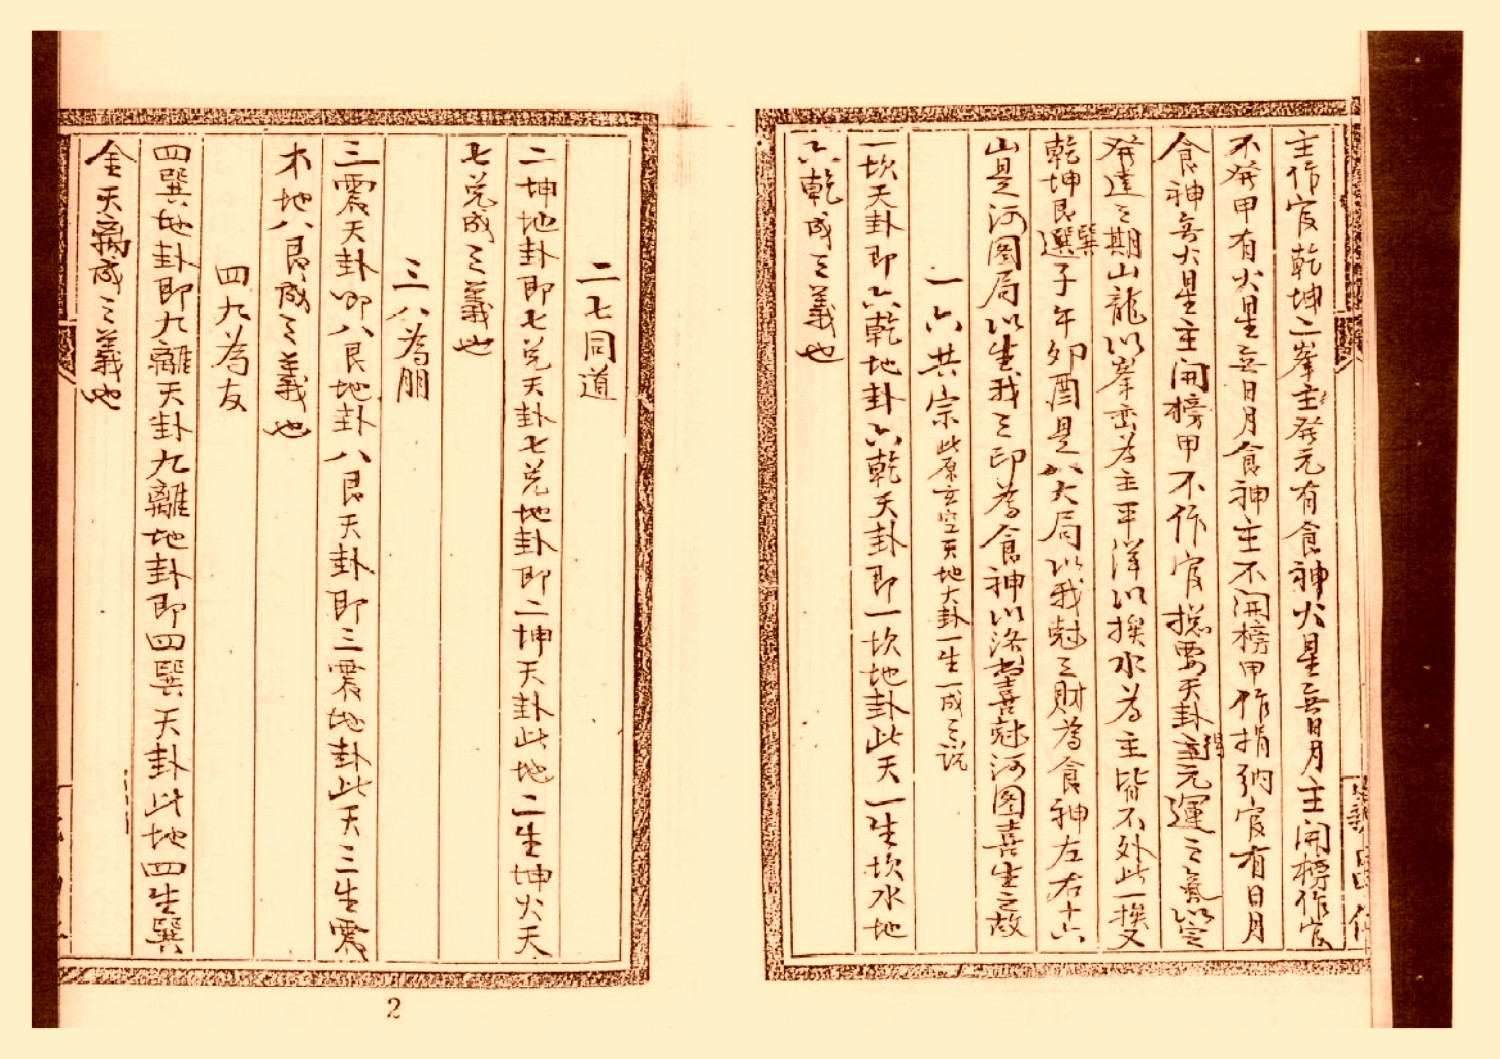 主作官乾坤二峯主發元有食神火星無日月主開榜作官
不發甲有火星無日月食神主不開榜甲作捐納官有日月
食神無火星主開榜甲不作官總要天卦主得元運之氣以定
發達之期山龍以峯巒為主平洋以挨水為主皆不外此一挨又
乾坤艮巽選子午卯酉是以大局以我尅之財為食神左右十六
山是河圖局以生我之印為食神以洛書喜尅河圖喜生之故
一六共宗此原玄空天地大卦一生一成之說
一坎天卦即六乾地卦六乾天卦即一坎地卦此天一生坎水地
六乾成之義也
二七同道
二坤地卦即七兌天卦七兌地卦即二坤天卦此地二生坤火天
七兌成之義也
三八為朋
三震天卦即八艮地卦八艮天卦即三震地卦此天三生震
木地八艮成之義也
四九為友
四巽地卦即九離天卦九離地卦即四巽天卦此地四生巽
金天九離成之義也
2